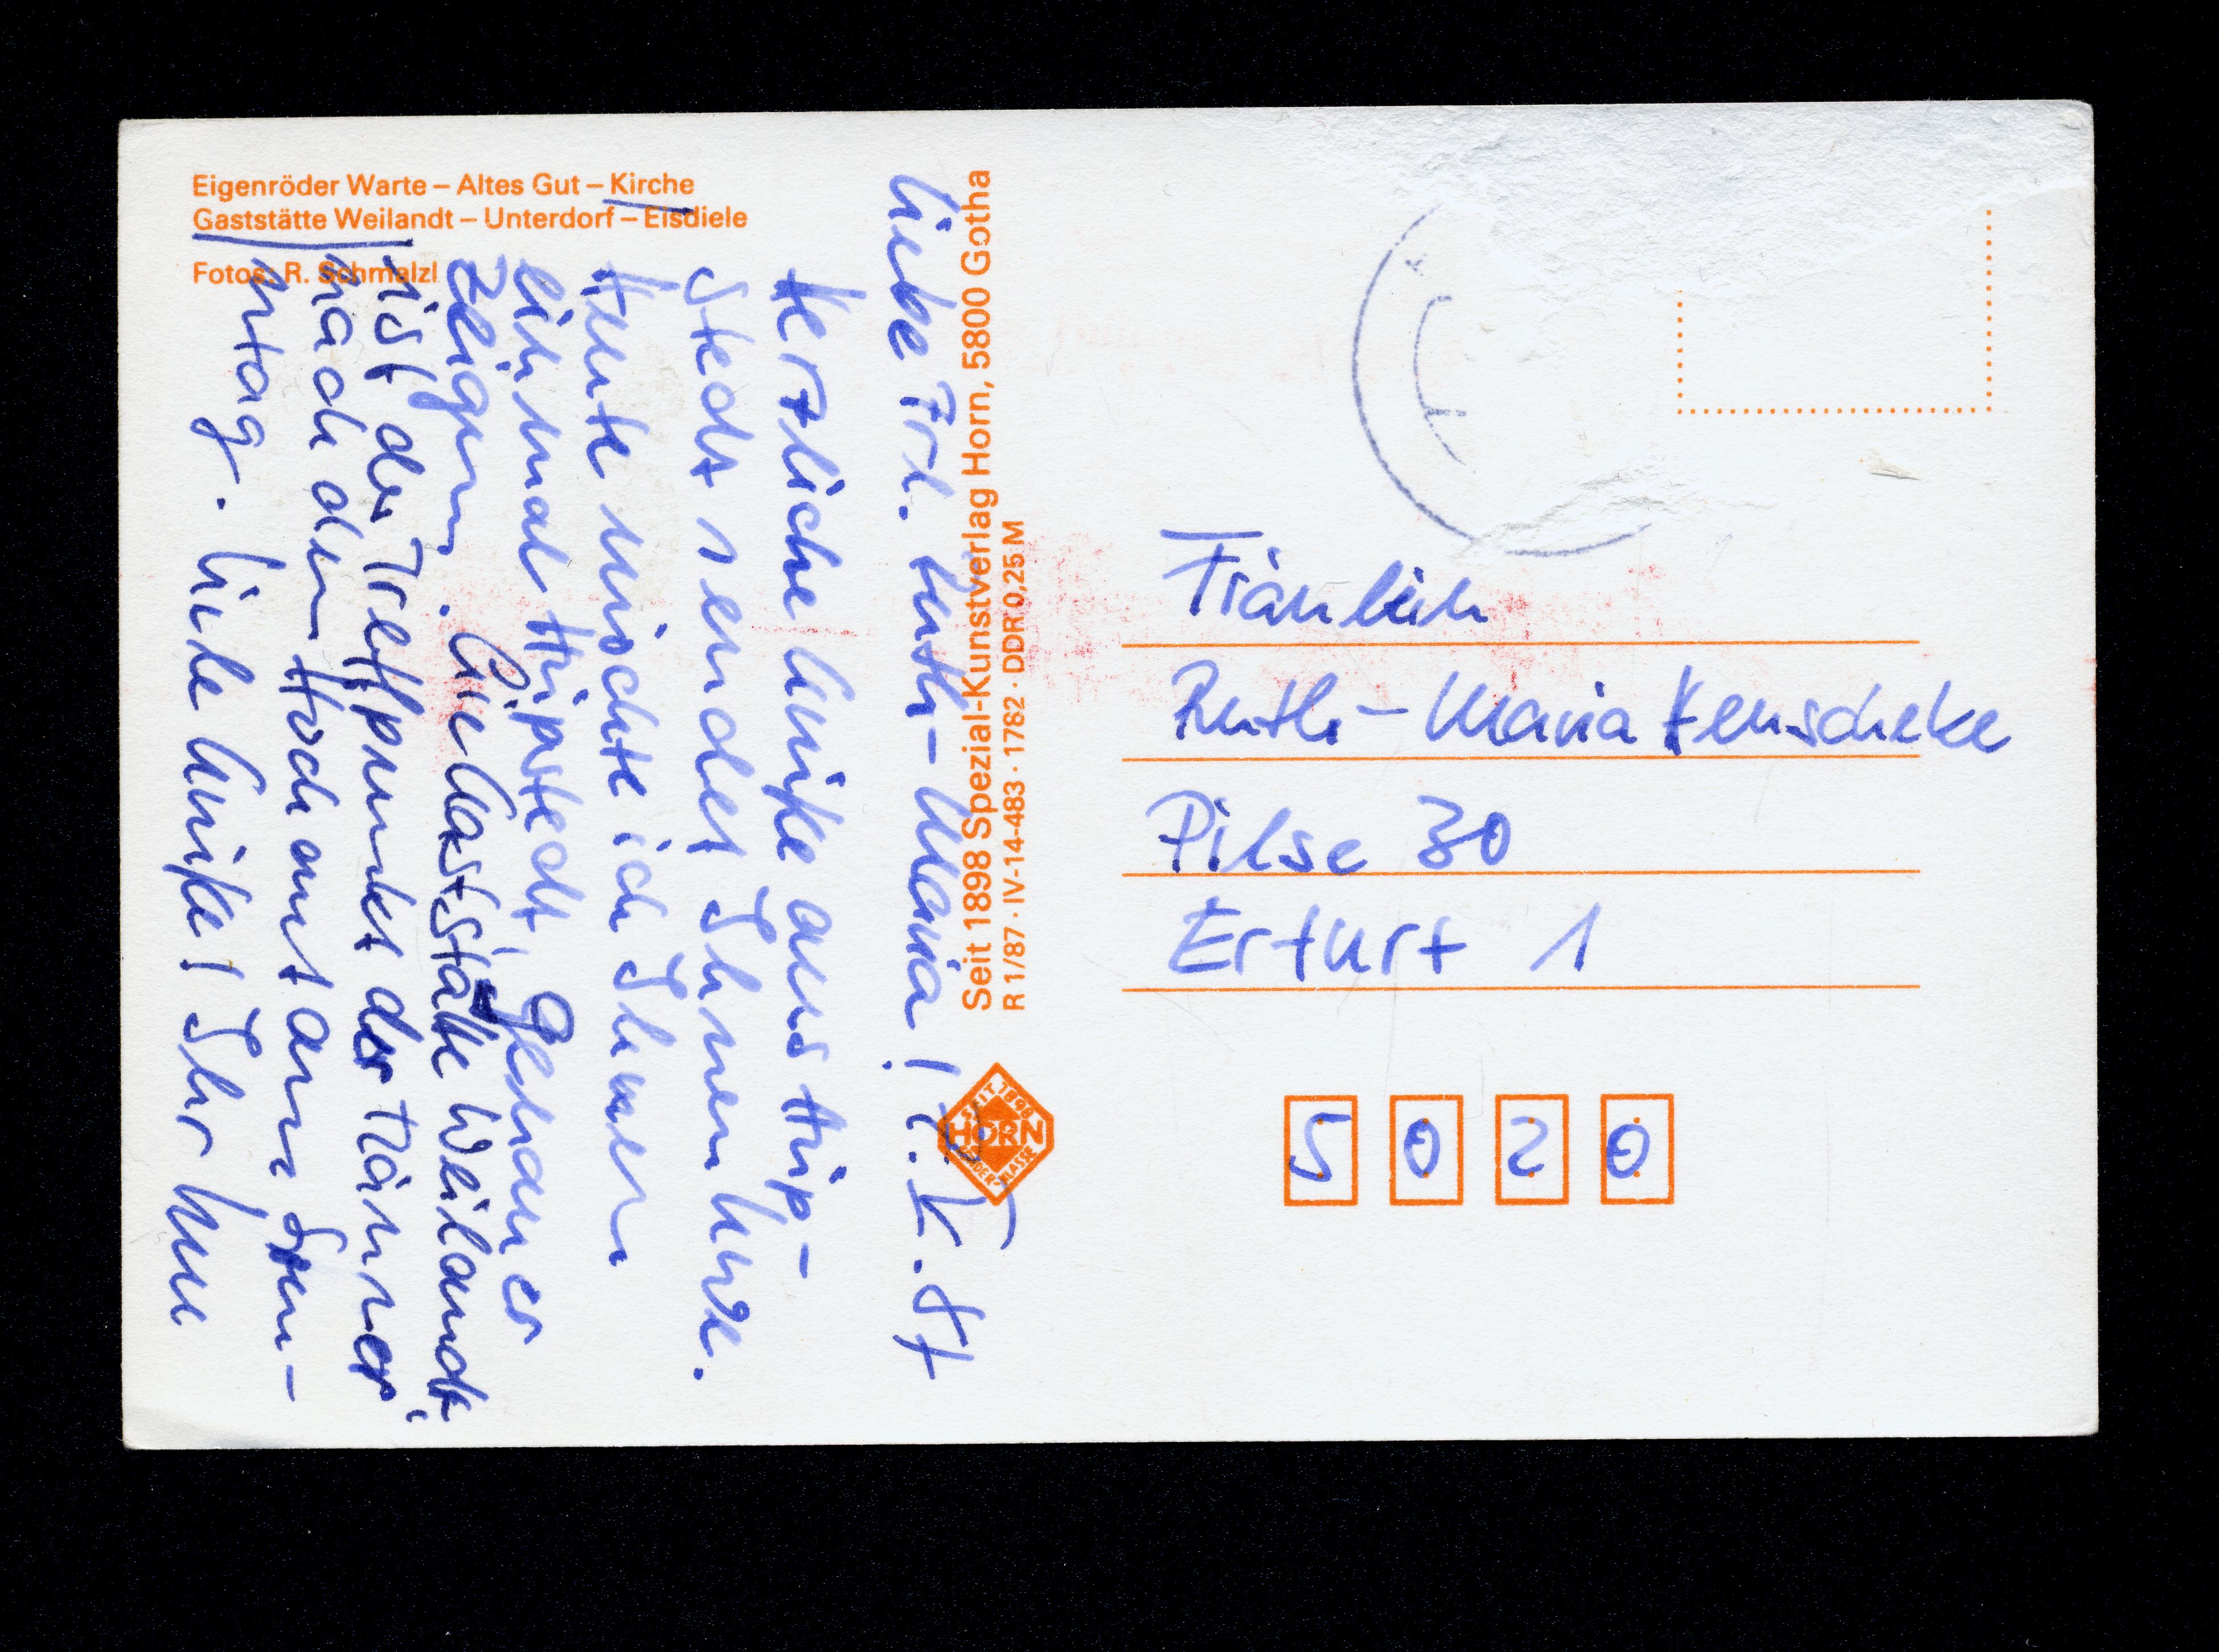 Eigenröder Warte – Altes Gut – Kirche
Gaststätte Weilandt – Unterdorf – Eisdiele
Fotos: R. Schmalzl
Liebe Frl. Ruth-Maria! V. 87
Herzliche Grüße aus Hüp-
stedt sendet Ihnen
Heute möchte ich Ihnen
einmal Hüpstedt, genauer
zeigen. Die Gaststätte Weilandt
ist der Treffpunkt der Männer
nach dem Hochamt am Son-
ntag. Viele Grüße! Ihr
Seit 1898 Spezial-Kunstverlag Horn, 5800 Gotha
R 1/87 · IV-14-483 · 1782 · DDR 0,25 M
SEIT 1898
HORN
Fräulein
Ruth-Maria
Pilse 30
Erfurt 1
5020